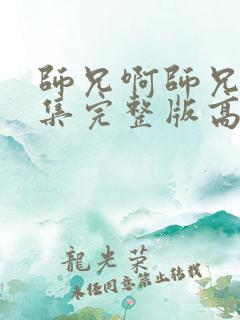 師兄啊師兄
集完整版高
龍光榮
未經同意禁止轉載